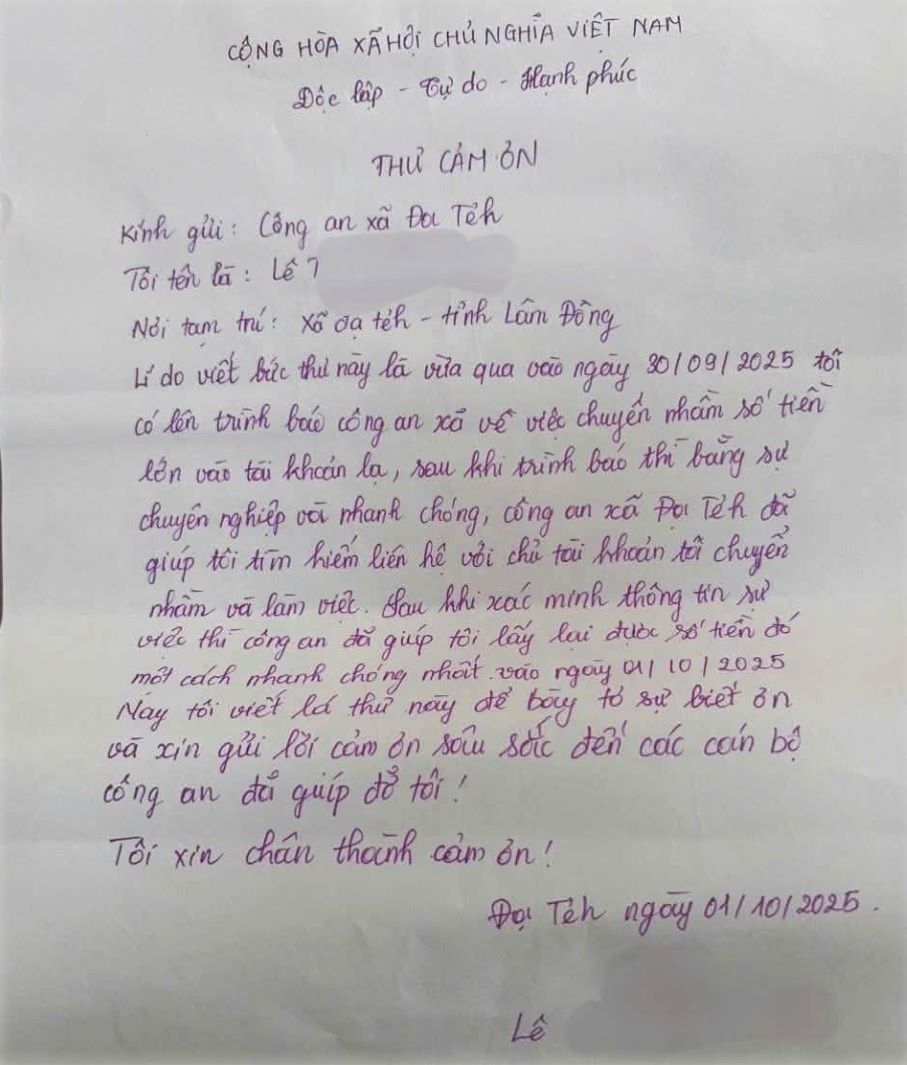 CỘNG HÒA XÃ HỘI CHỦ NGHĨA VIỆT NAM
Độc lập - Tự do - Hạnh phúc
THƯ CẢM ƠN
Kính gửi: Công an xã Đạ Tẻh
Tôi tên là: Lê
Nơi tạm trú: Xã Đạ tẻh - tỉnh Lâm Đồng
Lí do viết bức thư này là vừa qua vào ngày 30/09/2025 tôi
có lên trình báo công an xã về việc chuyển nhầm số tiền
lớn vào tài khoản lạ, sau khi trình báo thì bằng sự
chuyên nghiệp và nhanh chóng, công an xã Đạ Tẻh đã
giúp tôi tìm kiếm liên hệ với chủ tài khoản tôi chuyển
nhầm và làm việt. Sau khi xác minh thông tin sự
việc thì công an đã giúp tôi lấy lại được số tiền đó
một cách nhanh chóng nhất vào ngày 01/10/2025
Nay tôi viết lá thư này để bày tỏ sự biết ơn
và xin gửi lời cảm ơn sâu sắc đến các cán bộ
công an đã giúp đỡ tôi!
Tôi xin chân thành cảm ơn!
Đạ Tẻh ngày 01/10/2025.
Lê